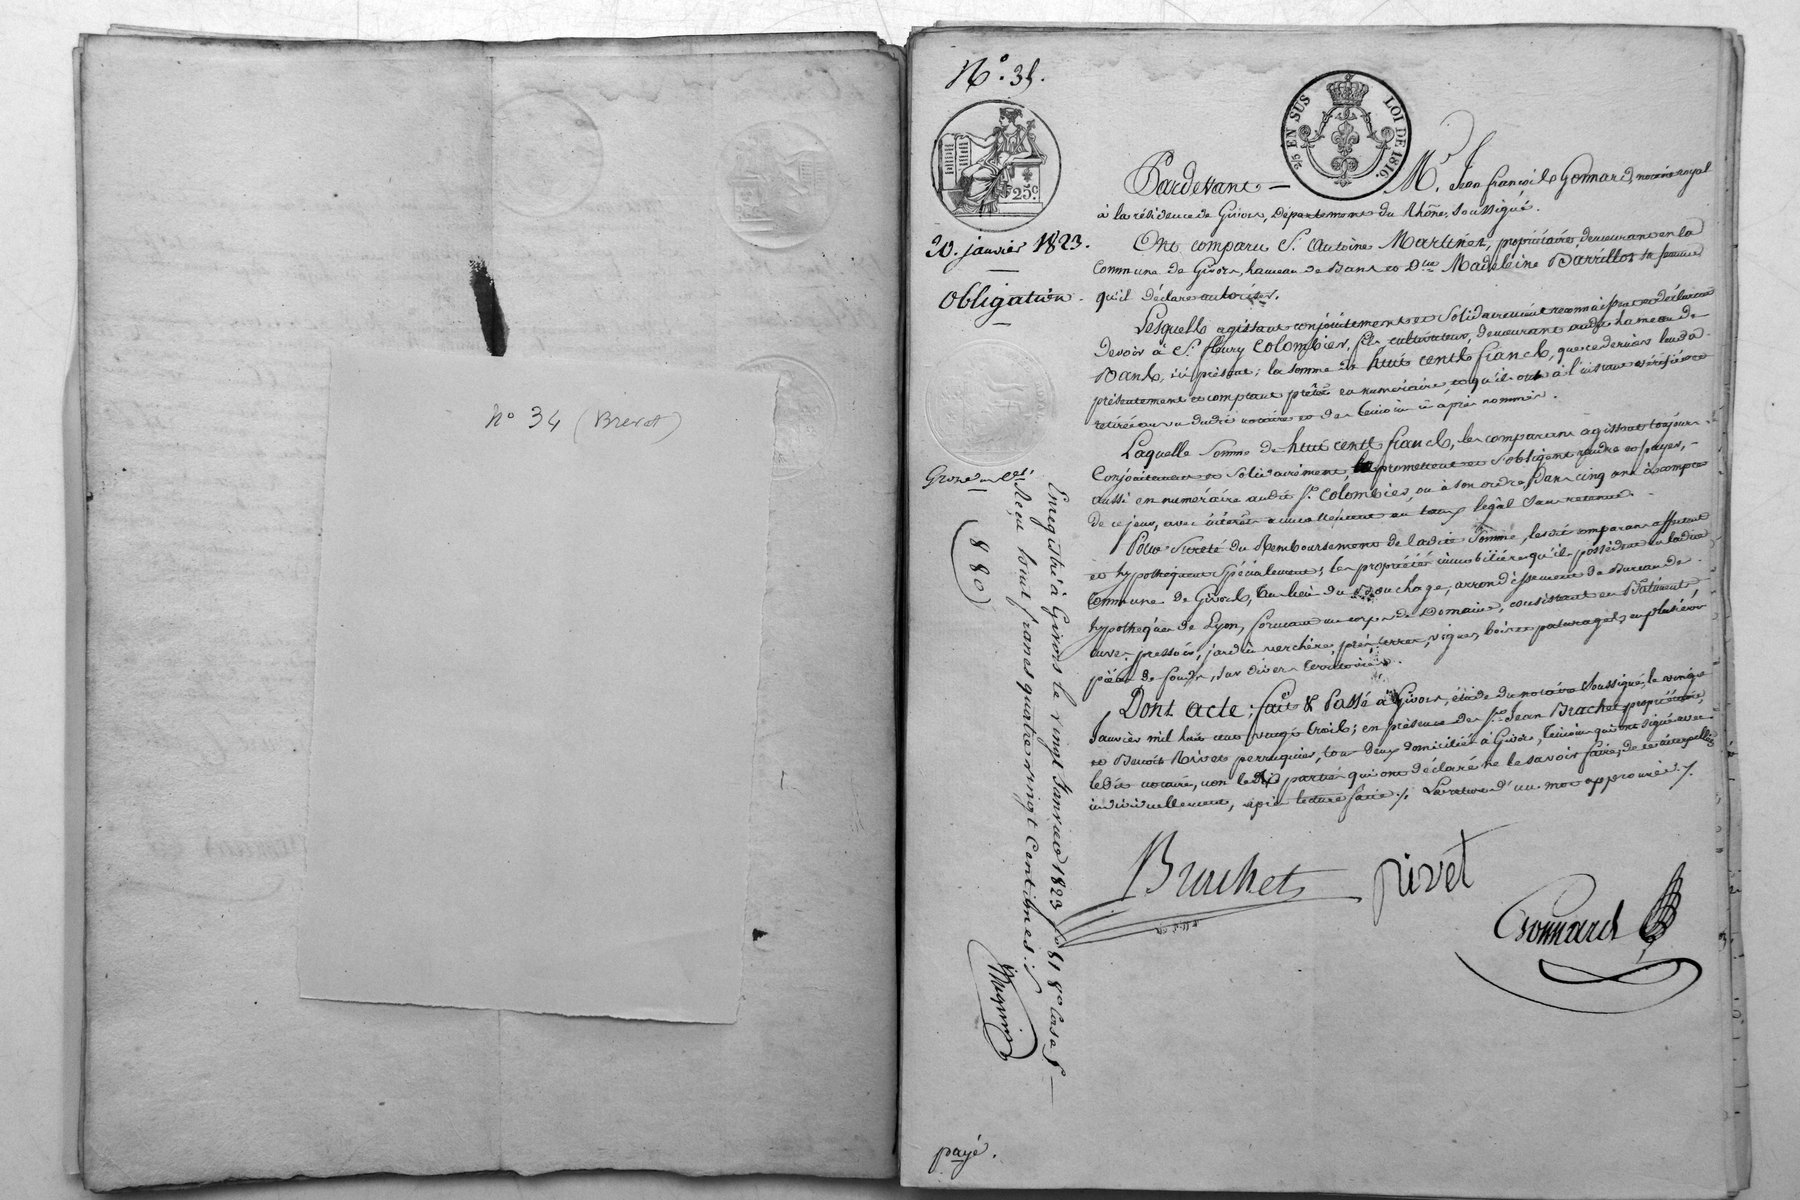 N° 34 (Brevet)
N°. 35.
2/5 EN SUS LOI DE 1816.
25c.
Pardevant — Me. Jean françois Gonnard, notaire royal
à la résidence de Givors, département du Rhône, soussigné.
20. janvier 1823.
Ont comparu Sr. Antoine Martinet, propriétaire, demeurant en la
Commune de Givors, hameau de Bans et Dme Madeleine Barrillot sa femme
Obligation.
qu'il déclare autoriser.
Lesquels agissant conjointement et Solidairement reconnaissent et déclarent
devoir à Sr. fleury Colombier, fils, cultivateur, demeurant audit hameau de
Bans, ici présent; la somme de huit cents francs, que ce dernier leur a
présentement et comptant prêtée en numéraire, et qu'ils ont à l'instant vérifiée et
retirée au vu dudit notaire et des témoins ci après nommés.
Laquelle Somme de huit cents francs, les comparans agissant toujours
Conjointement et Solidairement, promettent et s'obligent rendre et payer,
aussi en numéraire audit Sr. Colombier, ou à son ordre, dans cinq ans à compter
de ce jour, avec intérêts annuellement au taux légal sans retenue.
Pour Sureté du Remboursement de ladite Somme, lesdits comparans affectent
et hypothèquent Spécialement; les propriétés immobilières qu'ils possèdent en ladite
Commune de Givors, au lieu du Bouchage, arrondissement du Bureau des
hypothèques de Lyon, formant un corps de Domaine, consistant en Bâtiments
avec pressoir, jardin verchère, prés, terres, vignes, bois et paturages, en plusieurs
pièces de fonds, sur divers territoires.
Dont acte; fait & Passé à Givors, étude du notaire soussigné, le vingt
Janvier mil huit cent vingt trois; en présence des Srs. Jean Brachet propriétaire,
et Benoit Rivet perruquier, tous deux domiciliés à Givors, témoins qui ont signé avec
ledit notaire, non les parties qui ont déclaré ne le savoir faire, de ce interpellées
individuellement, après lecture faite ./. La rature d'un mot approuvée ./.
Brachet rivet
Gonnard
Grosse
(880)
Enregistré à Givors le vingt Janvier 1823 f° 81 V° Case
Reçu huit francs quatre vingt Centimes ./.
payé.